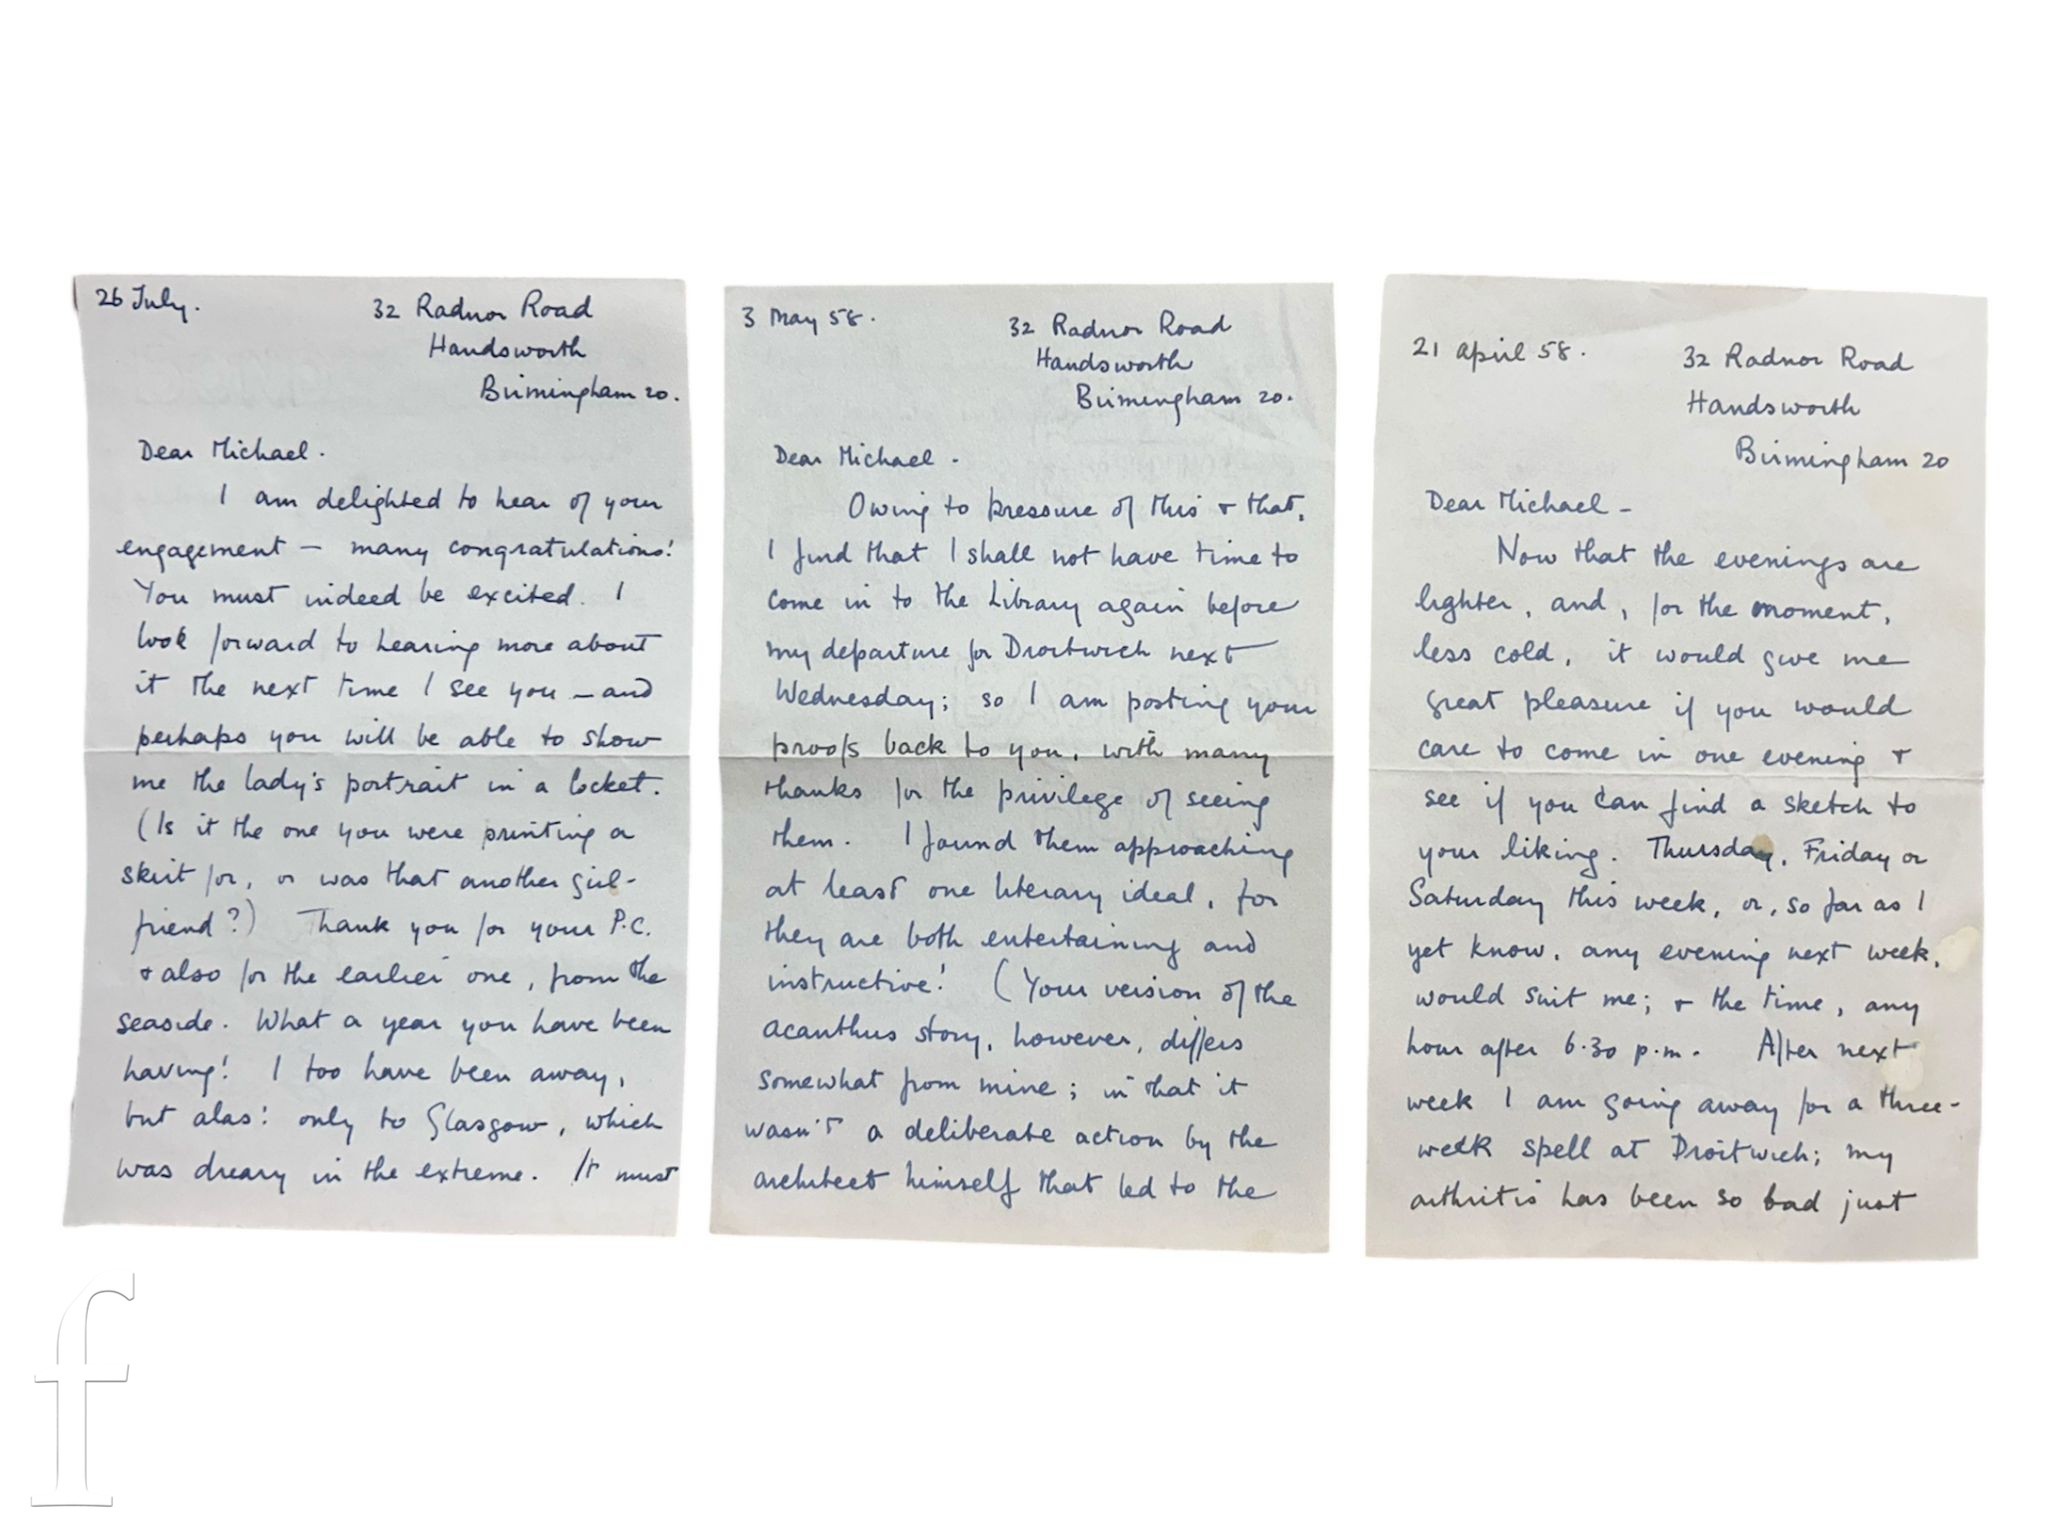 26 July.
32 Radnor Road
Handsworth
Birmingham 20.
Dear Michael.
I am delighted to hear of your
engagement – many congratulations!
You must indeed be excited. I
look forward to hearing more about
it the next time I see you – and
perhaps you will be able to show
me the lady's portrait in a locket.
(Is it the one you were printing a
skirt for, or was that another girl-
friend?) Thank you for your P.C.
& also for the earlier one, from the
seaside. What a year you have been
having! I too have been away,
but alas! only to Glasgow, which
was dreary in the extreme. It must
3 May 58.
32 Radnor Road
Handsworth
Birmingham 20.
Dear Michael.
Owing to pressure of this & that,
I find that I shall not have time to
come in to the Library again before
my departure for Droitwich next
Wednesday; so I am posting your
proofs back to you, with many
thanks for the privilege of seeing
them. I found them approaching
at least one literary ideal, for
they are both entertaining and
instructive! (Your version of the
acanthus story, however, differs
somewhat from mine; in that it
wasn't a deliberate action by the
architect himself that led to the
21 April 58.
32 Radnor Road
Handsworth
Birmingham 20
Dear Michael –
Now that the evenings are
lighter, and, for the moment,
less cold, it would give me
great pleasure if you would
care to come in one evening &
see if you can find a sketch to
your liking. Thursday, Friday or
Saturday this week, or, so far as I
yet know, any evening next week,
would suit me; & the time, any
hour after 6.30 p.m. After next
week I am going away for a three-
week spell at Droitwich; my
arthritis has been so bad just
f